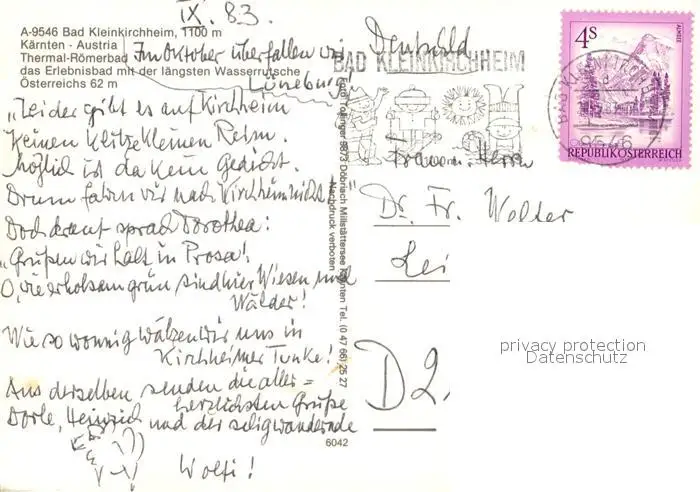 IX. 83.
A-9546 Bad Kleinkirchheim, 1100 m
Kärnten - Austria
Thermal-Römerbad
das Erlebnisbad mit der längsten Wasserrutsche
Österreichs 62 m
Im Oktober überfallen wir
Lüneburg
"Leider gibt es auf Kirchheim
Keinen klitzekleinen Reim.
Möglich ist da kein Gedicht.
Drum fahrn wir nach Kirchheim nicht.
Doch drauf sprach Dorothea:
"Grüßen wir halt in Prosa!
O, wie erholsam grün sind hier Wiesen und
Wälder!
Wie so wonnig wälzen wir uns in
Kirchheimer Tunke!
Aus derselben senden die aller=
herzlichsten Grüße
Dorle, Heinrich und der selig wandernde
Wolfi!
Foto Tollinger 9873 Döbriach Millstättersee Kärnten Tel. (0 47 66) 25 27
Nachdruck verboten
6042
BAD KLEINKIRCHHEIM
ALMSEE
4S
REPUBLIK ÖSTERREICH
9546
Frau u. Herrn
Dr. Fr. Wolder
Lei
D 2.
privacy protection
Datenschutz